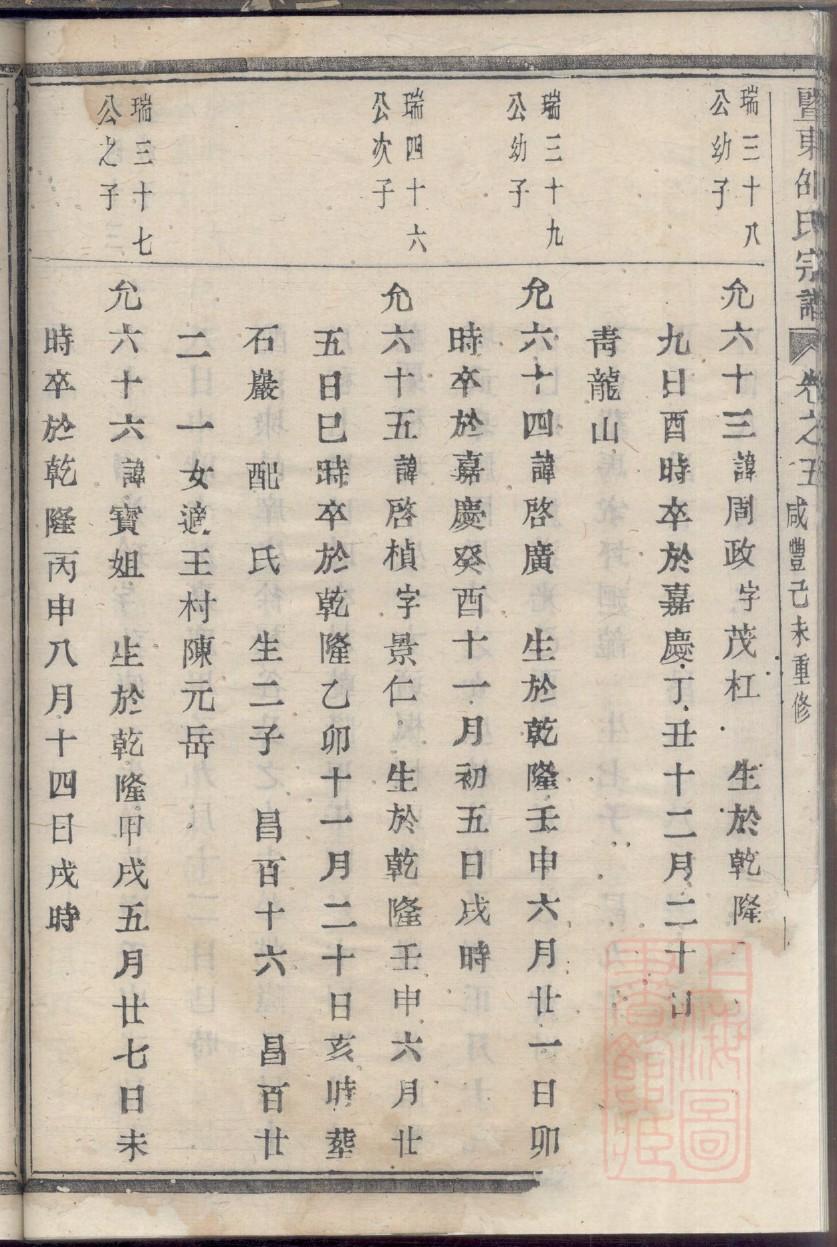 暨東邵氏宗譜 卷之五 咸豐己未重修
瑞三十八
公幼子
允六十三諱周政字茂杠 生於乾隆
九日酉時卒於嘉慶丁丑十二月二十日
青龍山
瑞三十九
公幼子
允六十四諱啓廣 生於乾隆壬申六月廿一日卯
時卒於嘉慶癸酉十一月初五日戌時
瑞四十六
公次子
允六十五諱啓楨字景仁 生於乾隆壬申六月廿
五日巳時卒於乾隆乙卯十一月二十日亥時葬
石巖 配 氏 生二子 昌百十六 昌百廿
二 一女適王村陳元岳
瑞三十七
公之子
允六十六諱寶姐 生於乾隆甲戌五月廿七日未
時卒於乾隆丙申八月十四日戌時
上海圖書館藏